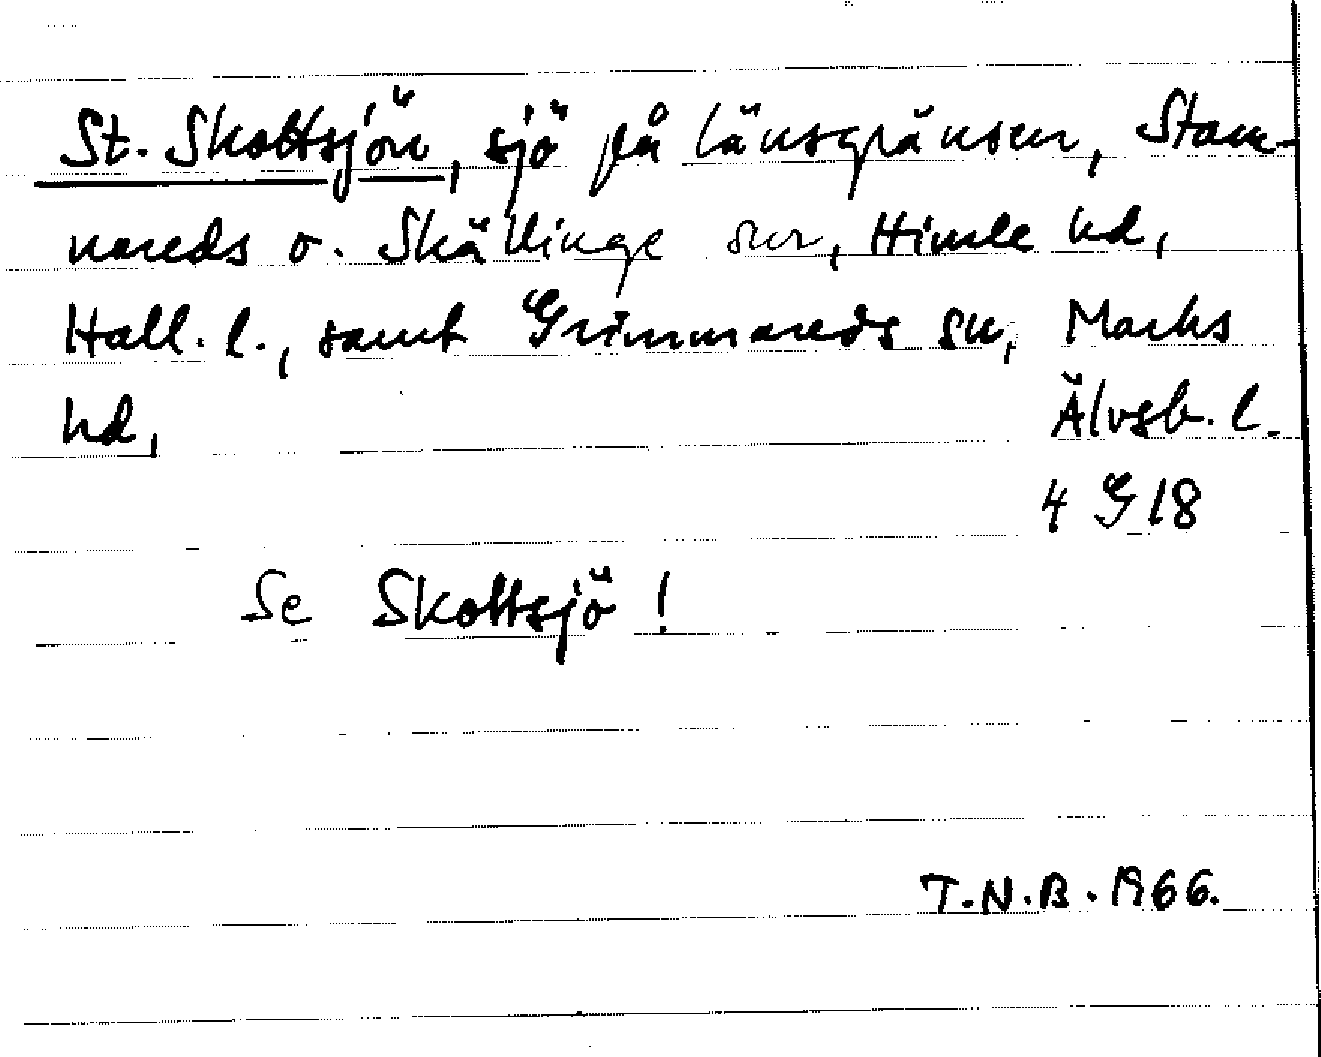 St. Skottsjön, sjö på länsgränsen, Stam-
nareds o. Skällinge snr, Himle hd,
Hall. l., samt Grimmareds sn, Marks
hd, Älvsb. l.
4 G 18
Se Skottsjö !
T.N.B. 1966.